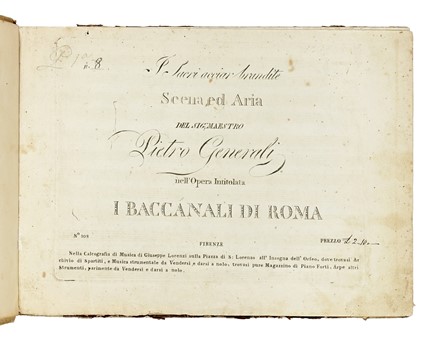 n. 8
I Sacri acciar brandite
Scena, ed Aria
DEL SIG. MAESTRO
Pietro Generali
nell'Opera Intitolata
I BACCÁNALI DI ROMA
N°
FIRENZE
PREZZO
Nella Calcografia di Musica di Giuseppe Lorenzi sulla Piazza di S. Lorenzo all' Insegna dell' Orfeo, dove trovasi Ar
chivio di Spartiti, e Musica strumentale da Vendersi e darsi a nolo; trovasi pure Magazzino di Piano Forti, Arpe altri
Strumenti, parimente da Vendersi e darsi a nolo.